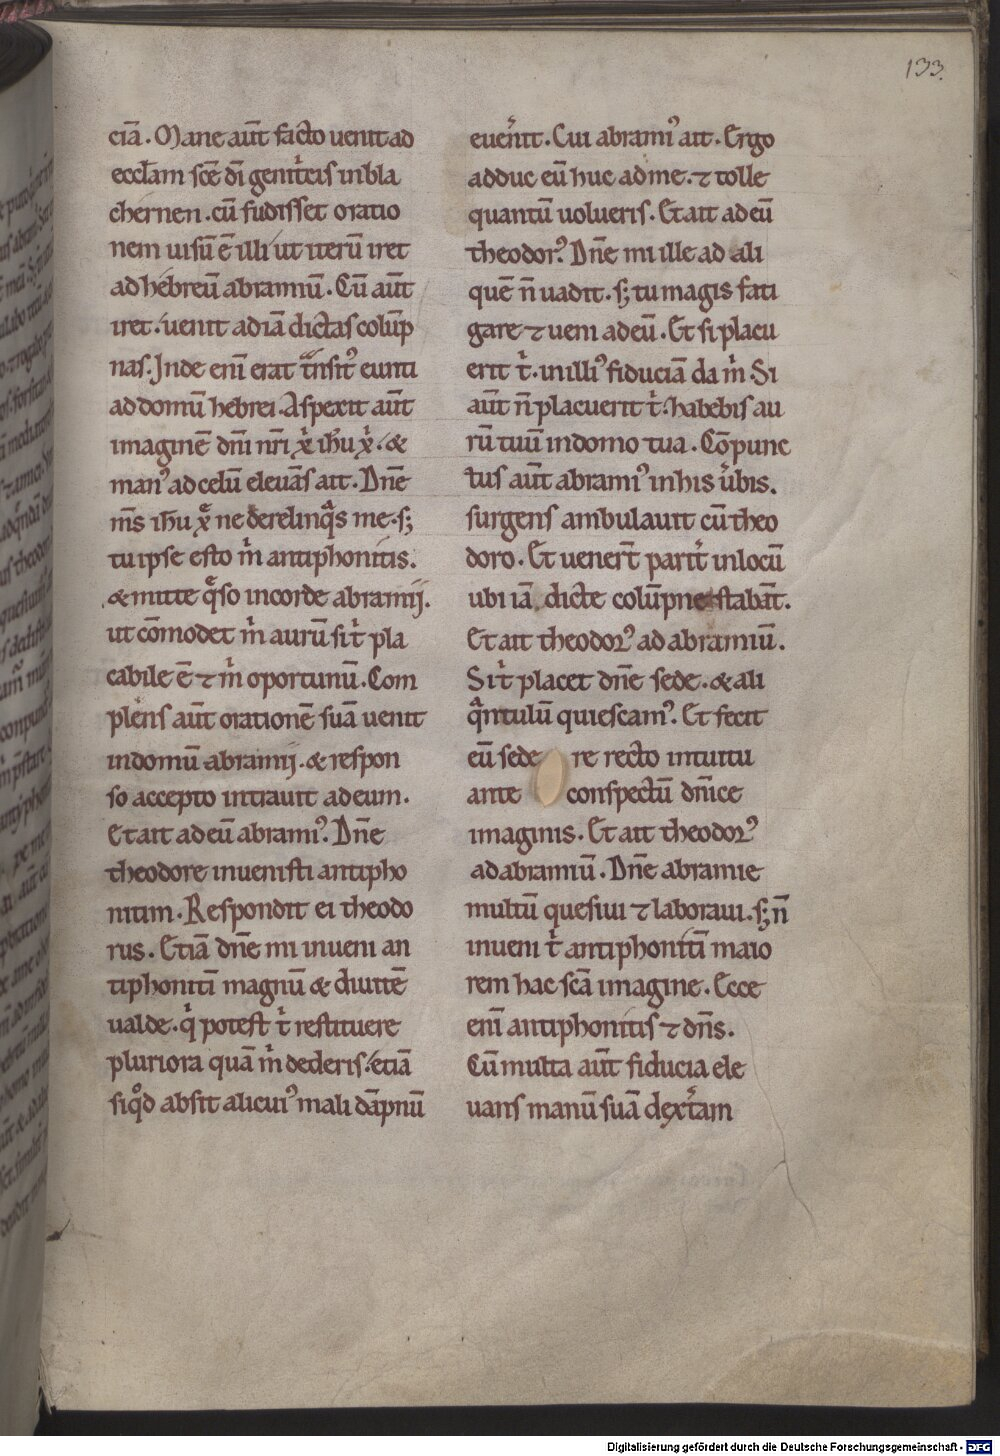 133.
ciā. Mane aūt facto uenit ad
eccl̄am scē dī genit̍cis in bla
chernen. cū fudisset oratio
nem uisū ē illi ut iterū iret
ad hebreū abramiū. Cū aūt
iret. uenit ad iā dictas colūp
nas. Inde eni erat tn̄sit᾽ eunti
ad domū hebrei. Aspexit aūt
imaginē dn̄i nr̄i xp̄i ih̄u xp̄i. &
man᾽ ad celū eleuās ait. Dn̄e
m̄s ih̄u xp̄e ne derelinq̄s me. s;
tu ipse esto m̍ antiphonitis.
& mitte q̄so in corde abramij.
ut cōmodet m̍ aurū sit̍ pla
cabile ē ⁊ m̍ oportunū. Com
plens aūt orationē suā uenit
in domū abramij. & respon
so accepto intrauit ad eum.
Et ait ad eū abrami᾽. Dn̄e
theodore inuenisti antipho
nitim. Respondit ei theodo
rus. Etiā dn̄e mi inueni an
tiphonitī magnū & diuitē
ualde. q̍ potest t̍ restituere
pluriora quā m̍ dederis. etiā
siq̊d absit alicui᾽ mali dāpnū
euen̍it. Cui abrami᾽ ait. Ergo
adduc eū huc ad me. ⁊ tolle
quantū uolueris. Et ait ad eū
theodor᾽. Dn̄e mi ille ad ali
quē n̄ uadit. s; tu magis fati
gare ⁊ ueni ad eū. Et si placu
erit t̍. in illi᾽ fiduciā da m̍. Si
aūt n̄ placuerit t̍. habebis au
rū tuū in domo tua. Cōpunc
tus aūt abrami᾽ in his u̍bis.
surgens ambulauit cū theo
doro. Et uener̄t parit̍ in locū
ubi iā dicte colūpne stabāt.
Et ait theodor᾽ ad abramiū.
Si t̍ placet dn̄e sede. & ali
q̄ntulū quiescam᾽. Et fecit
eū sede re recto intuitu
ante conspectū dn̄ice
imaginis. Et ait theodor᾽
ad abramiū. Dn̄e abramie
multū quesiui ⁊ laboraui. s; n̄
inueni t̍ antiphonitī maio
rem hac scā imagine. Ecce
eni antiphonitis ⁊ dn̄s.
Cū multa aūt fiducia ele
uans manū suā dext̄am
Digitalisierung gefördert durch die Deutsche Forschungsgemeinschaft - DFG